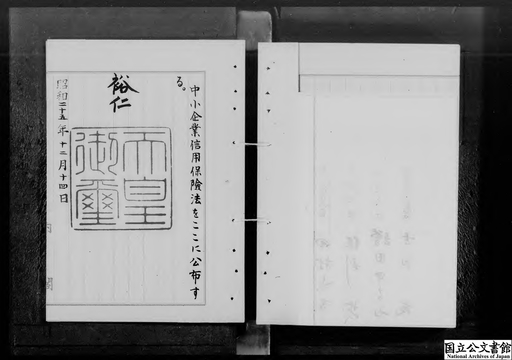 中小企業信用保険法をここに公布す
る。
裕仁
天皇
御璽
昭和二十五年十二月十四日
内閣
国立公文書館
National Archives of Japan